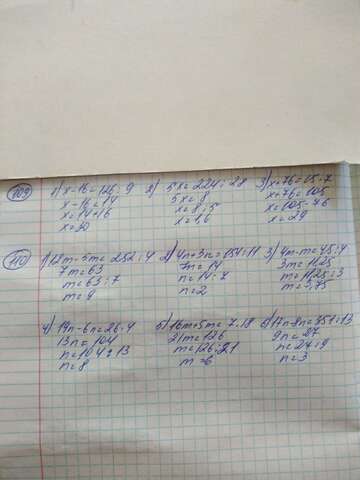 109 1) x-16=126:9 2) 5x=224:28 3) x+76=15·7
x-16=14 5x=8 x+76=105
x=14+16 x=8:5 x=105-76
x=30 x=1,6 x=29
110 1) 12m-5m=252:4 2) 4n+3n=154:11 3) 4m-m=45:4
7m=63 7n=14 3m=11,25
m=63:7 n=14:7 m=11,25:3
m=9 n=2 m=3,75
4) 19n-6n=26·4 5) 16m+5m=7·18 6) 17n-8n=351:13
13n=104 21m=126 9n=27
n=104:13 m=126:21 n=27:9
n=8 m=6 n=3